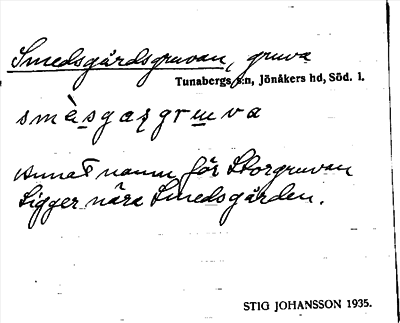 Smedsgårdsgruvan, gruva
Tunabergs s:n, Jönåkers hd, Söd. l.
smèsgaʂgruva
Annat namn för Storgruvan
Ligger nära Smedsgården.
STIG JOHANSSON 1935.